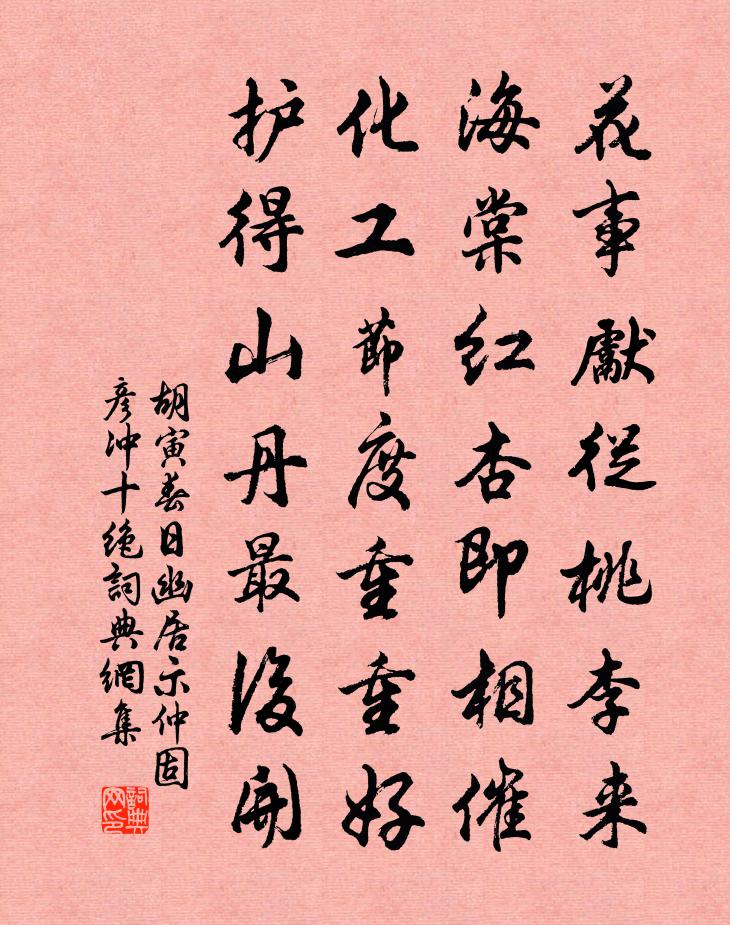 花事獻從桃李来
海棠红杏即相催
化工節度重重好
护得山丹最後開
胡寅春日幽居示仲固
彦冲十绝詞典網集
詞典
网印